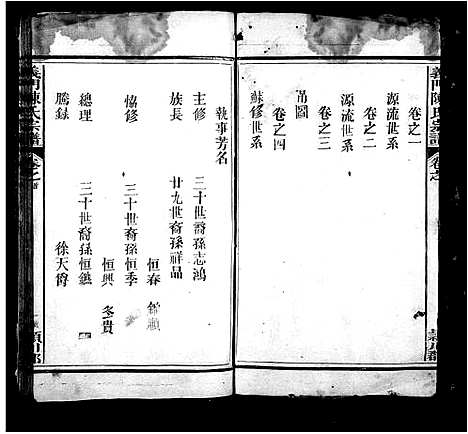 義門陳氏宗譜
卷之一
源流世系
卷之二
源流世系
卷之三
吊圖
卷之四
蘇修世系
執事芳名
主修 三十世裔孫志鴻
族長 廿九世裔孫祥品
恒春
協修 三十世裔孫恒季
恒興 冬貴
總理 三十世裔孫恒鑣
謄錄 徐天爵
義門陳氏宗譜 卷之首
潁川郡